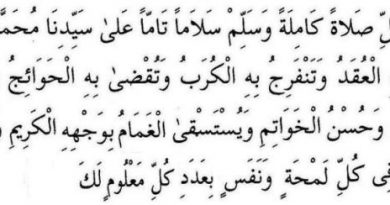 صَلَاةً كَامِلَةً وَسَلِّمْ سَلَاماً تَامّاً عَلىٰ سَيِّدِنَا
الْعُقَدُ وَتَنْفَرِجُ بِهِ الْكُرَبُ وَتُقْضىٰ بِهِ الْحَوَائِجُ
وَحُسْنُ الْخَوَاتِمِ وَيُسْتَسْقىٰ الْغَمَامُ بِوَجْهِهِ الْكَرِيمِ
كُلِّ لَمْحَةٍ وَنَفَسٍ بِعَدَدِ كُلِّ مَعْلُومٍ لَكَ